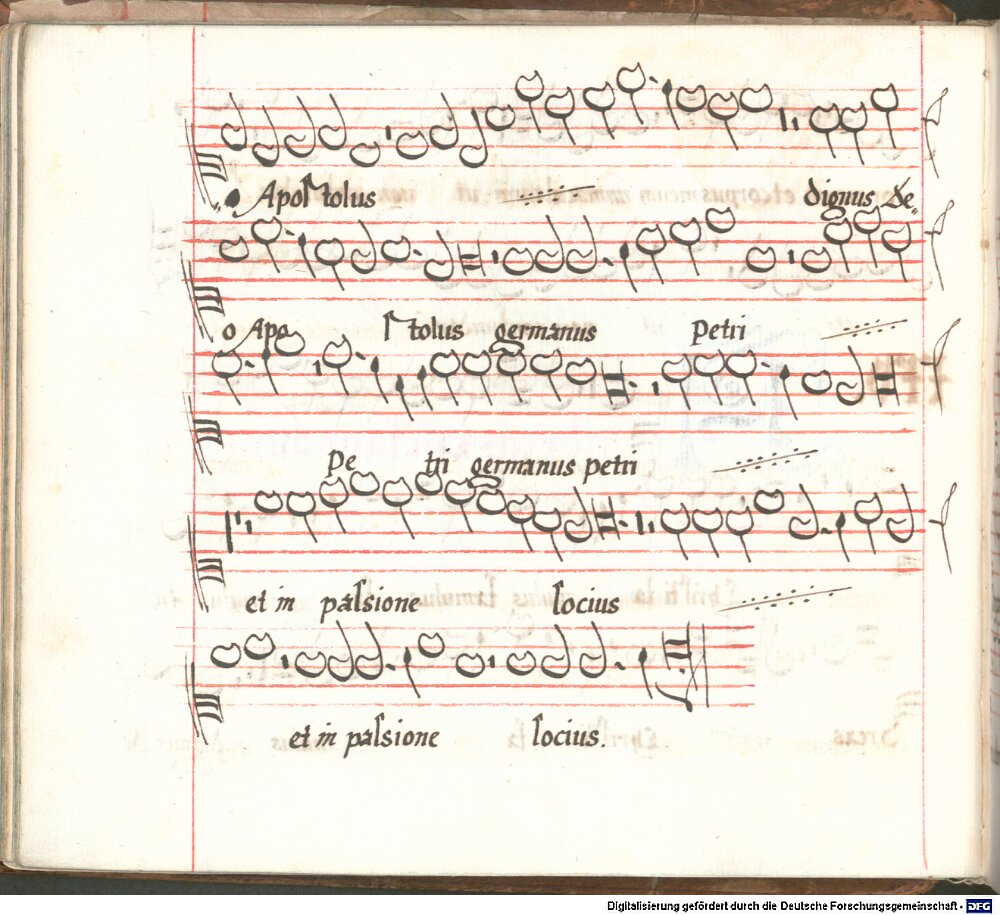 Apostolus dignus de
o Apo stolus germanus Petri
Pe tri germanus petri
et in passione socius
et in passione socius.
Digitalisierung gefördert durch die Deutsche Forschungsgemeinschaft - DFG